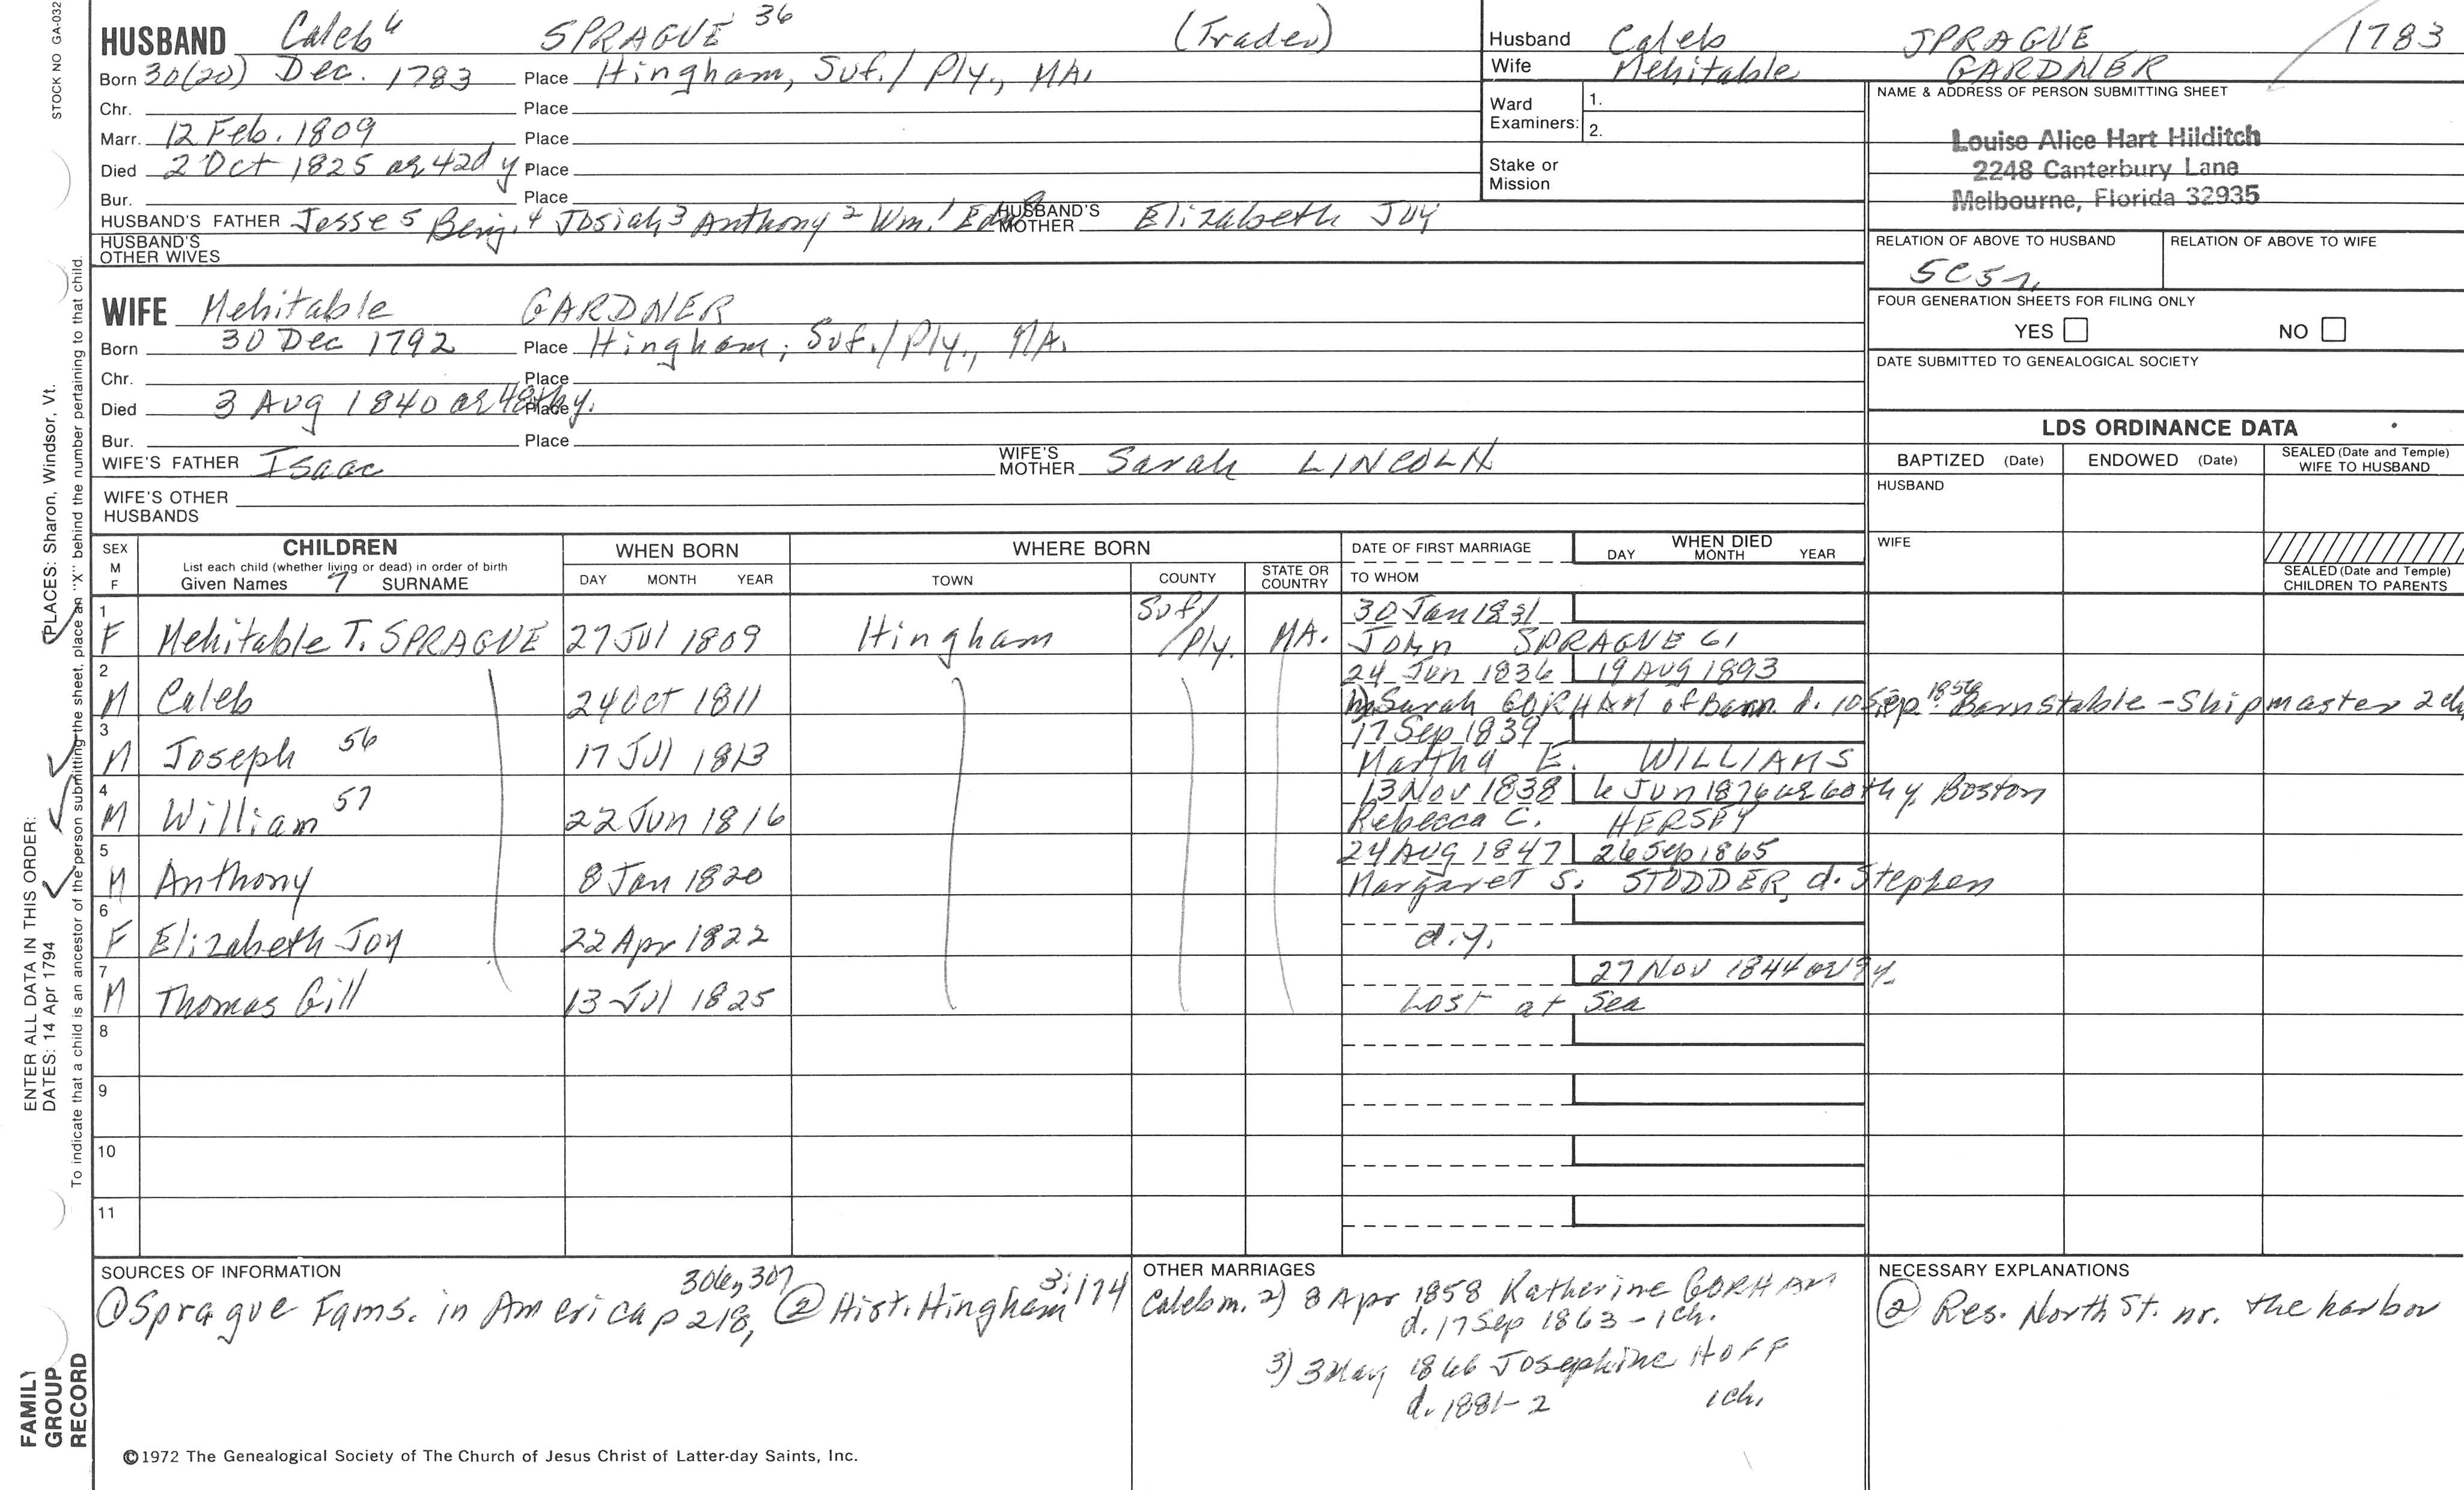 STOCK NO GA-032
HUSBAND Caleb 6 SPRAGUE 36 (Trader)
Born 30(20) Dec. 1783 Place Hingham, Suf./Ply., MA.
Chr. Place
Marr. 12 Feb. 1809 Place
Died 2 Oct 1825 ae 42d y Place
Bur. Place
HUSBAND'S FATHER Jesse 5 Benj. 4 Josiah 3 Anthony 2 Wm. 1 HUSBAND'S MOTHER Elizabeth JOY
HUSBAND'S OTHER WIVES
WIFE Mehitable GARDNER
Born 30 Dec 1792 Place Hingham, Suf./Ply., MA.
Chr. Place
Died 3 Aug 1840 ae 48th y. Place
Bur. Place
WIFE'S FATHER Isaac WIFE'S MOTHER Sarah LINCOLN
WIFE'S OTHER HUSBANDS
Husband Caleb SPRAGUE 1783
Wife Mehitable GARDNER
Ward Examiners: 1.
2.
Stake or Mission
NAME & ADDRESS OF PERSON SUBMITTING SHEET
Louise Alice Hart Hilditch
2248 Canterbury Lane
Melbourne, Florida 32935
RELATION OF ABOVE TO HUSBAND RELATION OF ABOVE TO WIFE
5C5r.
FOUR GENERATION SHEETS FOR FILING ONLY
YES NO
DATE SUBMITTED TO GENEALOGICAL SOCIETY
LDS ORDINANCE DATA
BAPTIZED (Date) ENDOWED (Date) SEALED (Date and Temple) WIFE TO HUSBAND
HUSBAND
WIFE
SEALED (Date and Temple) CHILDREN TO PARENTS
SEX M F CHILDREN WHEN BORN WHERE BORN DATE OF FIRST MARRIAGE WHEN DIED
List each child (whether living or dead) in order of birth DAY MONTH YEAR
Given Names 7 SURNAME DAY MONTH YEAR TOWN COUNTY STATE OR COUNTRY TO WHOM
1 30 Jan 1831
F Mehitable T. SPRAGUE 27 Jul 1809 Hingham Suf/Ply. MA. John SPRAGUE 61
2 24 Jun 1836 19 Aug 1893
M Caleb 24 Oct 1811 1) Sarah GORHAM of Barn. d. 10 Sep 1856 Barnstable - Shipmaster 2 ch
3 17 Sep 1839
M Joseph 56 17 Jul 1813 Martha E. WILLIAMS
4 13 Nov 1838 6 Jun 1876 ae 60th y. Boston
M William 57 22 Jun 1816 Rebecca C. HERSEY
5 24 Aug 1847 26 Sep 1865
M Anthony 8 Jan 1820 Margaret S. STODDER, d. Stephen
6
F Elizabeth Joy 22 Apr 1822 d.y.
7 27 Nov 1844 ae 19 y.
M Thomas Gill 13 Jul 1825 Lost at Sea
8
9
10
11
SOURCES OF INFORMATION
① Sprague Fams. in America p 218, 306, 307 ② Hist. Hingham 3:174
OTHER MARRIAGES
Caleb m. 2) 8 Apr 1858 Katherine GORHAM
d. 17 Sep 1863 - 1 ch.
3) 3 May 1866 Josephine HOFF
d. 1881-2 1 ch.
NECESSARY EXPLANATIONS
② Res. North St. nr. the harbor
©1972 The Genealogical Society of The Church of Jesus Christ of Latter-day Saints, Inc.
FAMILY GROUP RECORD
ENTER ALL DATA IN THIS ORDER:
DATES: 14 Apr 1794 PLACES: Sharon, Windsor, Vt.
To indicate that a child is an ancestor of the person submitting the sheet, place an "X" behind the number pertaining to that child.